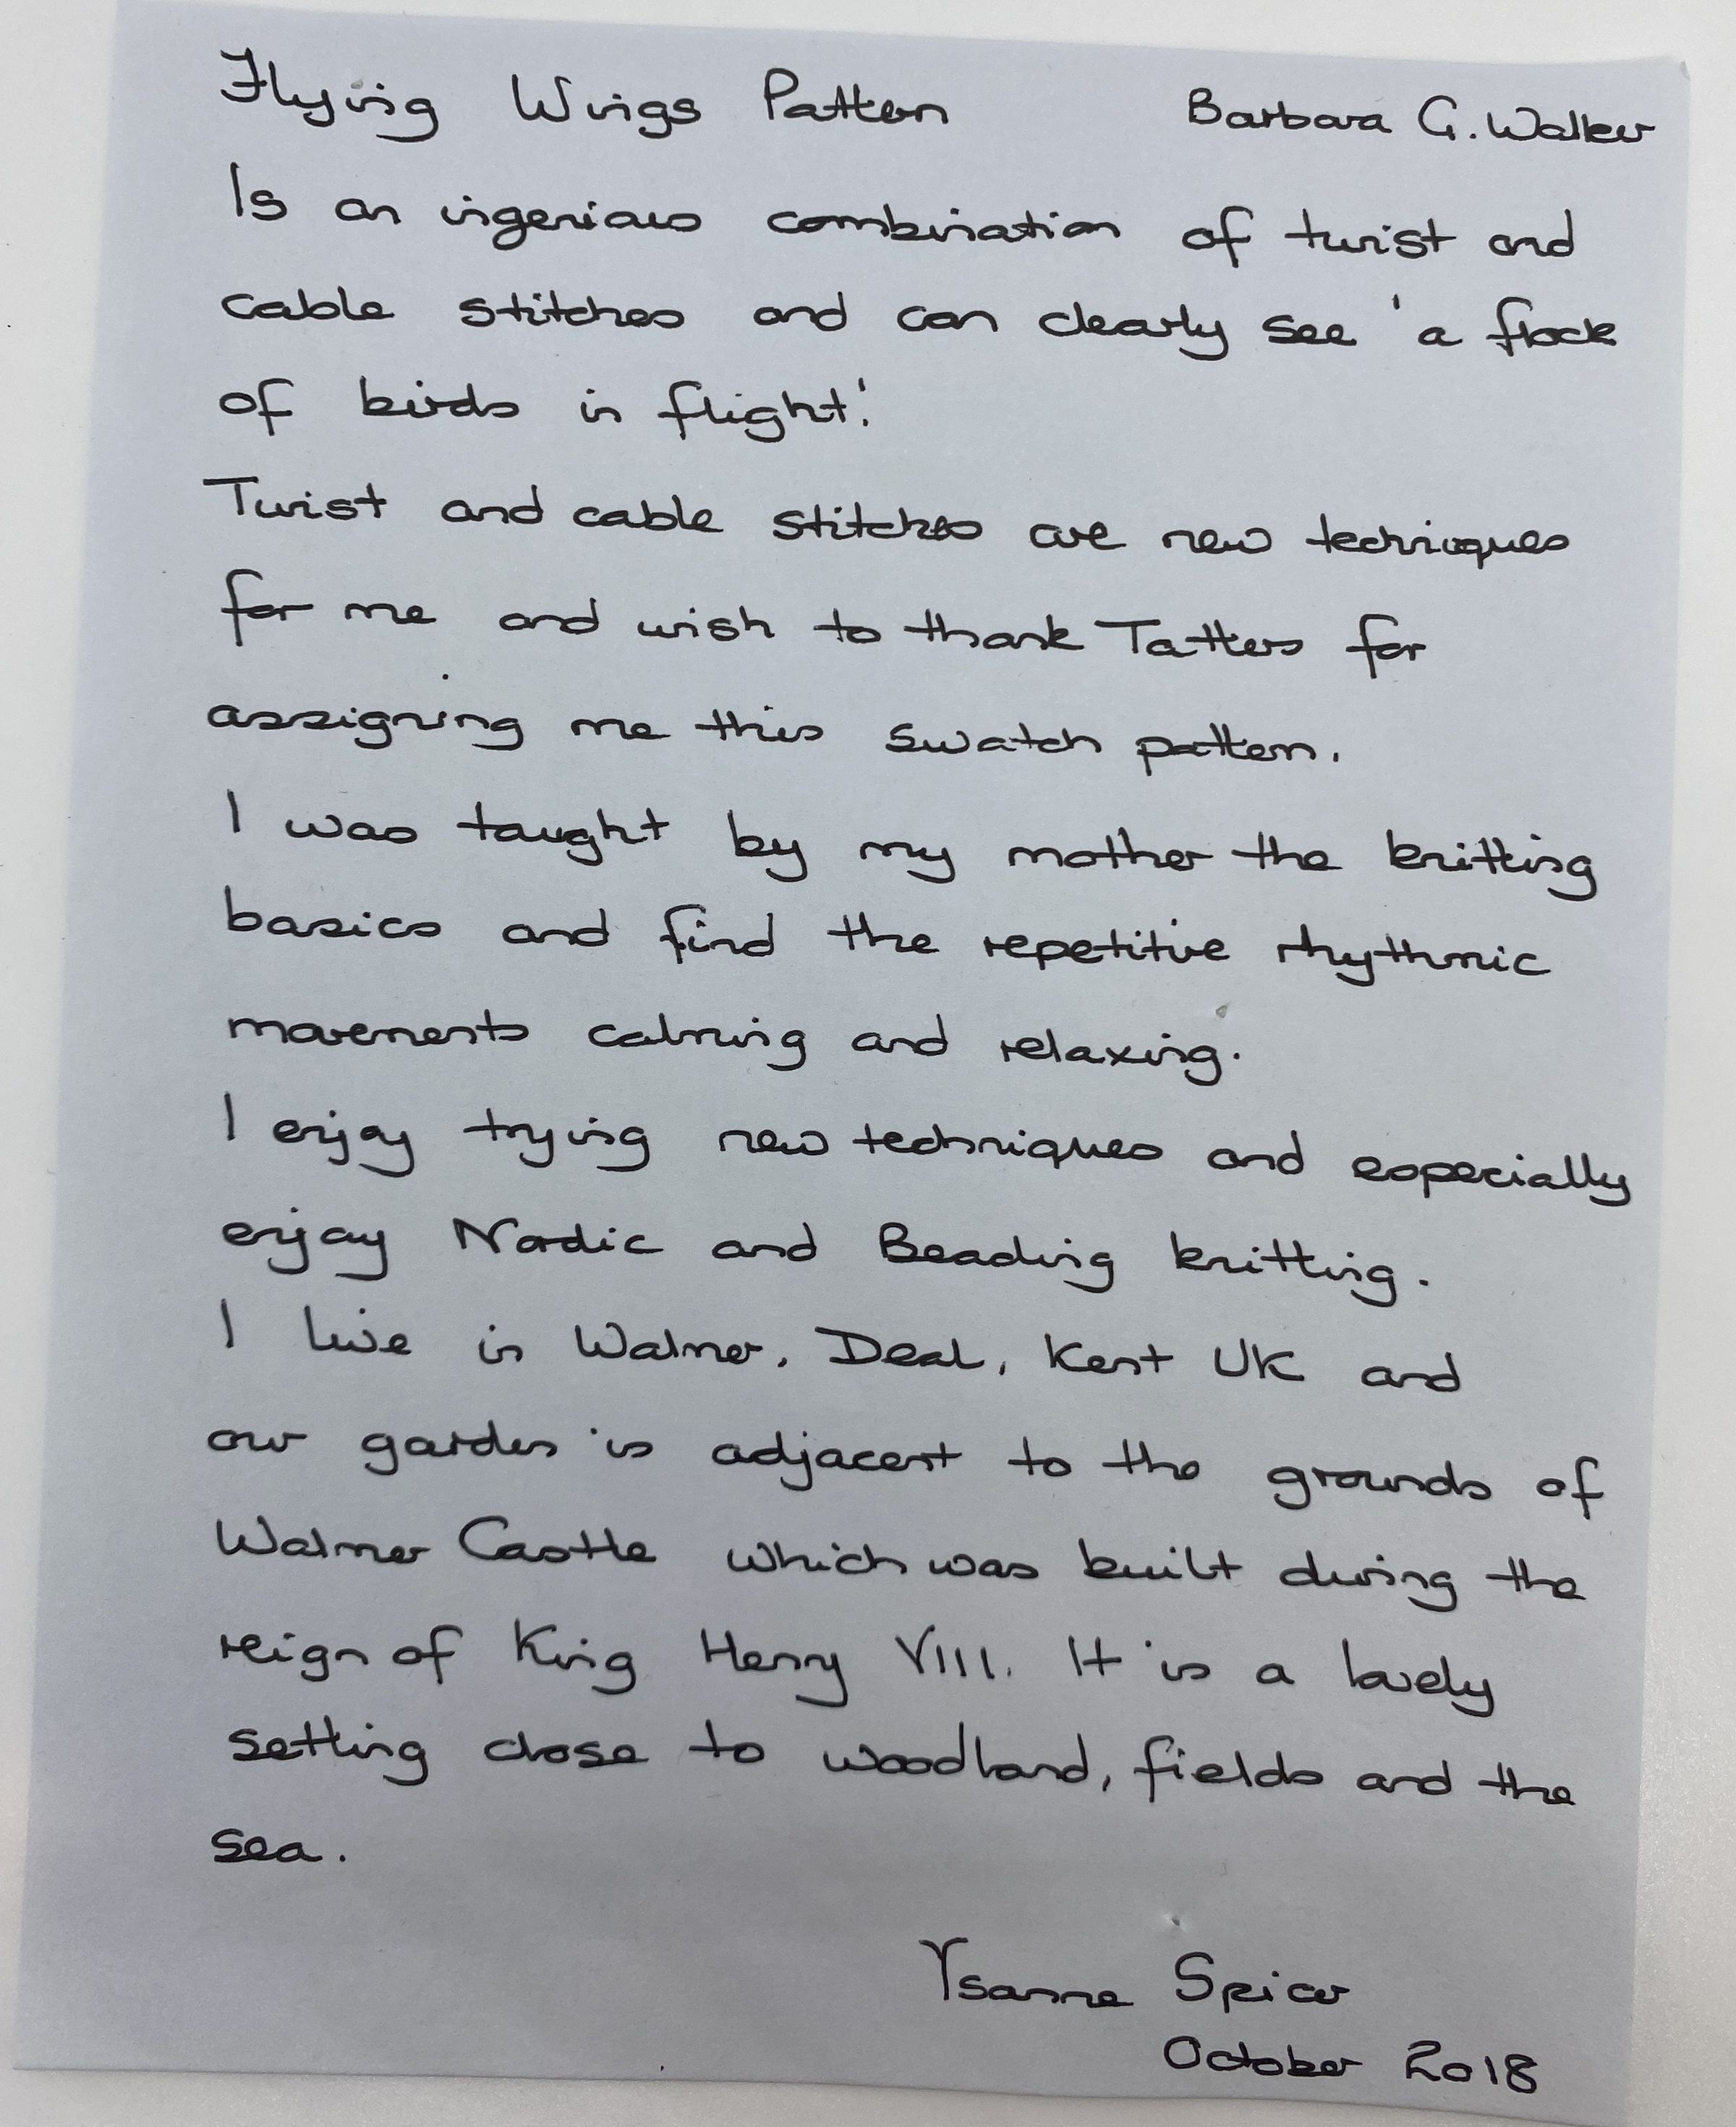 Flying Wings Pattern Barbara G. Walker
Is an ingenious combination of twist and
cable stitches and can clearly see 'a flock
of birds in flight.'
Twist and cable stitches are new techniques
for me and wish to thank Tatters for
assigning me this swatch pattern.
I was taught by my mother the knitting
basics and find the repetitive rhythmic
movements calming and relaxing.
I enjoy trying new techniques and especially
enjoy Nordic and Beading knitting.
I live in Walmer, Deal, Kent UK and
our garden is adjacent to the grounds of
Walmer Castle which was built during the
reign of King Henry VIII. It is a lovely
setting close to woodland, fields and the
sea.
Ysanne Spicer
October 2018